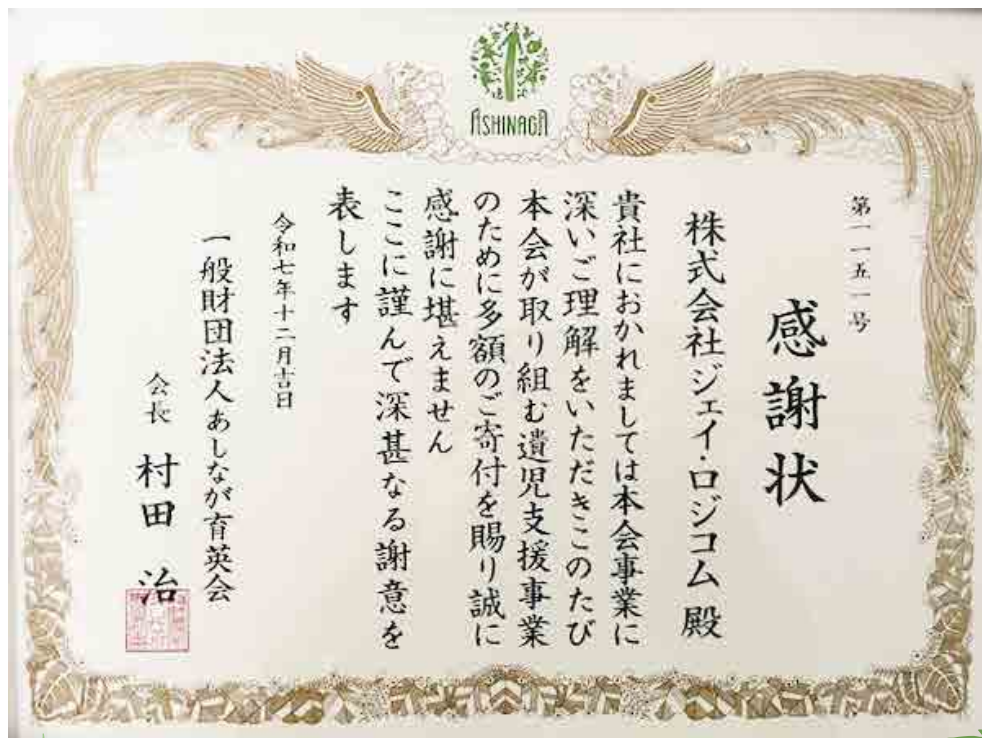 ASHINAGA
第一一五一号
感謝状
株式会社ジェイ・ロジコム 殿
貴社におかれましては本会事業に
深いご理解をいただきこのたび
本会が取り組む遺児支援事業
のために多額のご寄付を賜り誠に
感謝に堪えません
ここに謹んで深甚なる謝意を
表します
令和七年十二月吉日
一般財団法人あしなが育英会
会長 村田 治